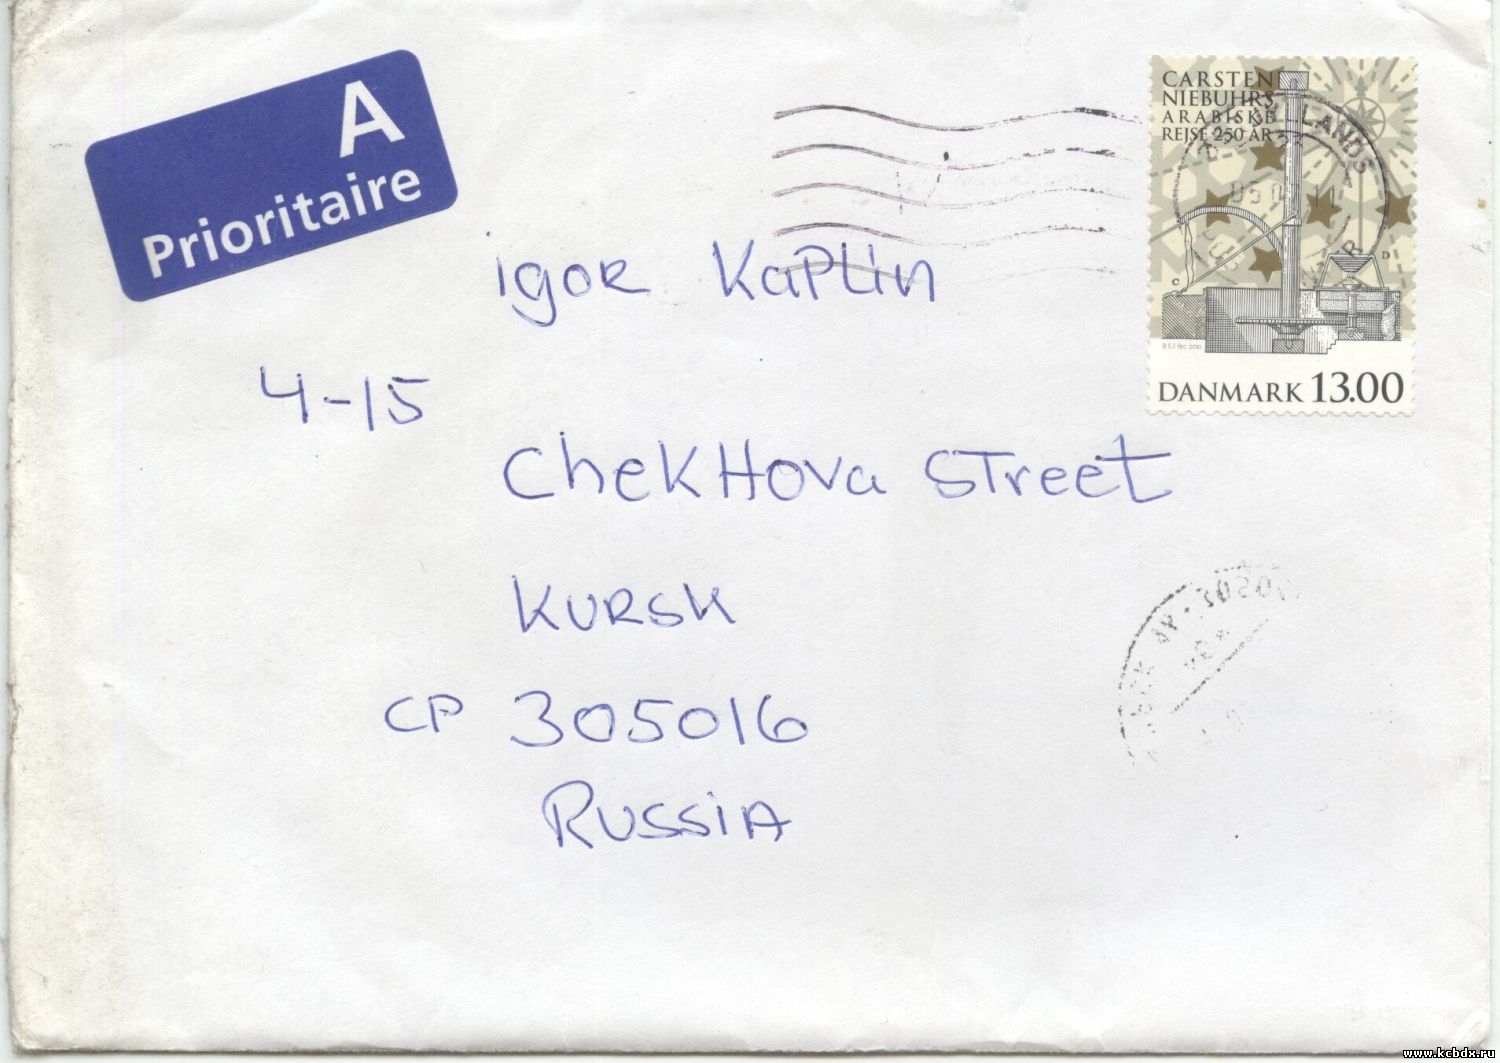 A
Prioritaire
CARSTEN
NIEBUHRS
ARABISKE
REJSE 250 ÅR
LANDS
C
D
DANMARK 13.00
igor Kaplin
4-15
Chekhova Street
Kursk
CP 305016
Russia
www.kcbdx.ru